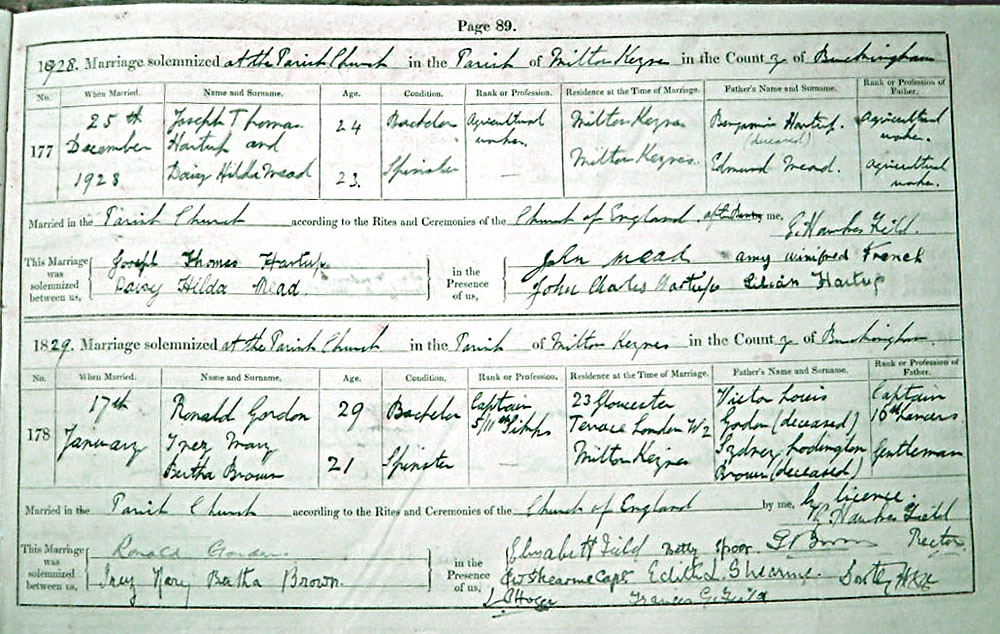 Page 89.
1928. Marriage solemnized at the Parish Church in the Parish of Milton Keynes in the County of Buckingham
No. When Married. Name and Surname. Age. Condition. Rank or Profession. Residence at the Time of Marriage. Father's Name and Surname. Rank or Profession of Father.
177
25th December 1928
Joseph Thomas Hartup and 24 Bachelor Agricultural worker. Milton Keynes Benjamin Hartup. (deceased) Agricultural worker.
Daisy Hilda Mead 23. Spinster — Milton Keynes. Edmund Mead. agricultural worker.
Married in the Parish Church according to the Rites and Ceremonies of the Church of England. me,
Hawkes Field.
This Marriage was solemnized between us,
Joseph Thomas Hartup
Daisy Hilda Mead.
in the Presence of us,
John Mead amy winifred French
John Charles Hartup Lilian Hartup
1829. Marriage solemnized at the Parish Church in the Parish of Milton Keynes in the County of Buckingham.
No. When Married. Name and Surname. Age. Condition. Rank or Profession. Residence at the Time of Marriage. Father's Name and Surname. Rank or Profession of Father.
178
17th January
Ronald Gordon 29 Bachelor Captain 5/11th 23 Gloucester Terrace London W2 Victor Louis Gordon (deceased) Captain 16th Lancers
Inez Mary Bertha Brown 21 Spinster — Milton Keynes Sydney Lodington Brown (deceased) Gentleman
Married in the Parish Church according to the Rites and Ceremonies of the Church of England by me, by licence.
Hawkes Field
Rector
This Marriage was solemnized between us,
Ronald Gordon
Inez Mary Bertha Brown.
in the Presence of us,
Elizabeth Field Betty Spoor.
Shearme Capt Edith L. Shearme.
Frances G. Field